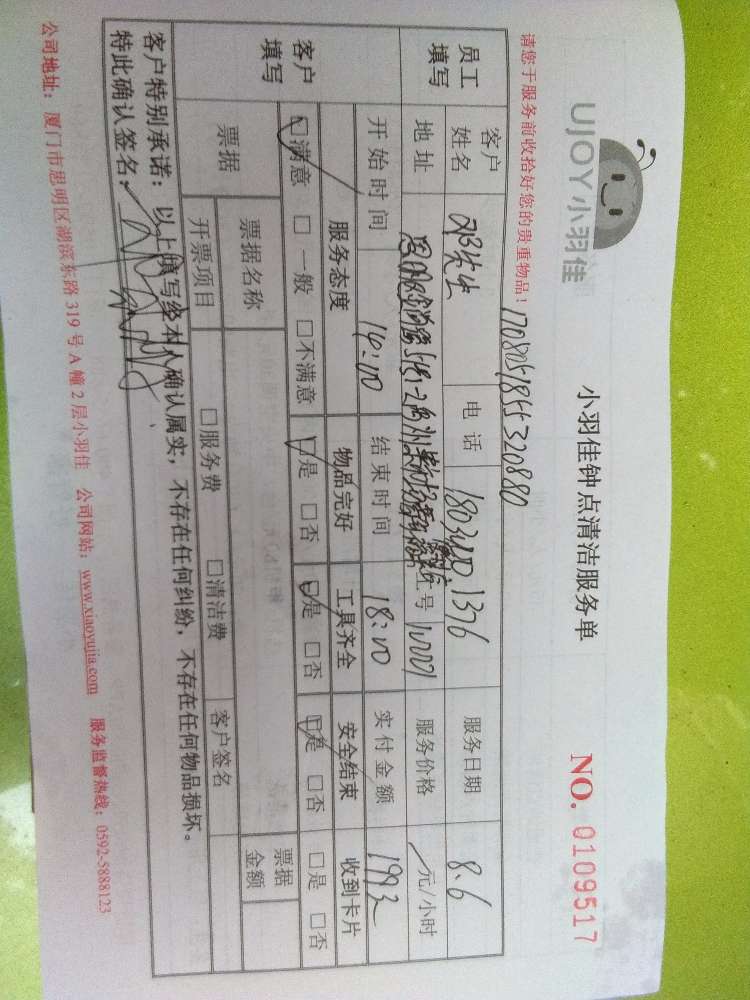 UJOY小羽佳
小羽佳钟点清洁服务单
NO. 0109517
请您于服务前收拾好您的贵重物品！
1708051855320880
员工填写
客户姓名 邓先生 电话 18034001376 服务日期 8.6
地址 工号 10001 服务价格 元/小时
客户填写
开始时间 14:00 结束时间 18:00 实付金额 199.2
服务态度 物品完好 工具齐全 安全结束 收到卡片
☑满意 □一般 □不满意 ☑是 □否 ☑是 □否 ☑是 □否 □是 □否
票据 票据名称 票据金额
开票项目 □服务费 □清洁费 客户签名
客户特别承诺：以上填写经本人确认属实，不存在任何纠纷，不存在任何物品损坏。
特此确认签名：
公司地址：厦门市思明区湖滨东路319号A幢2层小羽佳 公司网站：www.xiaoyujia.com 服务监督热线：0592-5888123